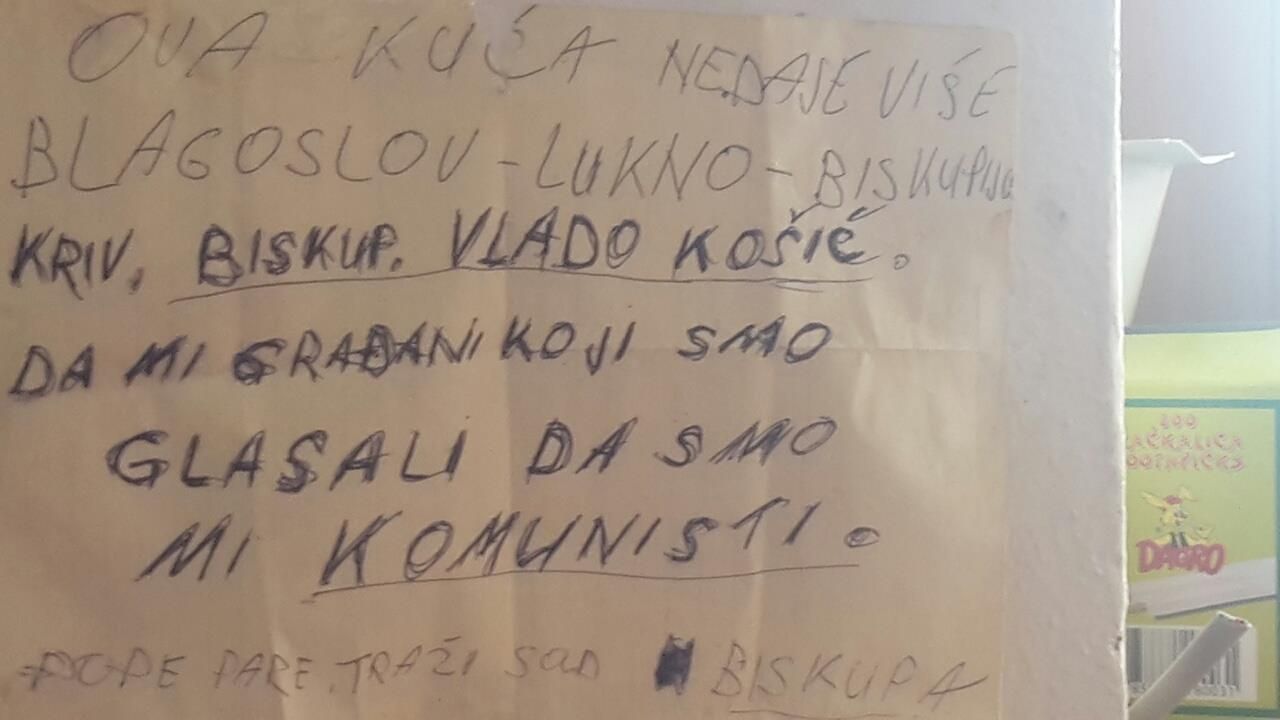 OVA KUĆA NEDAJE VIŠE
BLAGOSLOV - LUKNO - BISKUPIJU
KRIV, BISKUP. VLADO KOŠIĆ.
DA MI GRAĐANI KOJI SMO
GLASALI DA SMO
MI KOMUNISTI.
POPE PARE, TRAŽI SAD BISKUPA
200
AČKALICA
OOTHPICKS
DAGRO